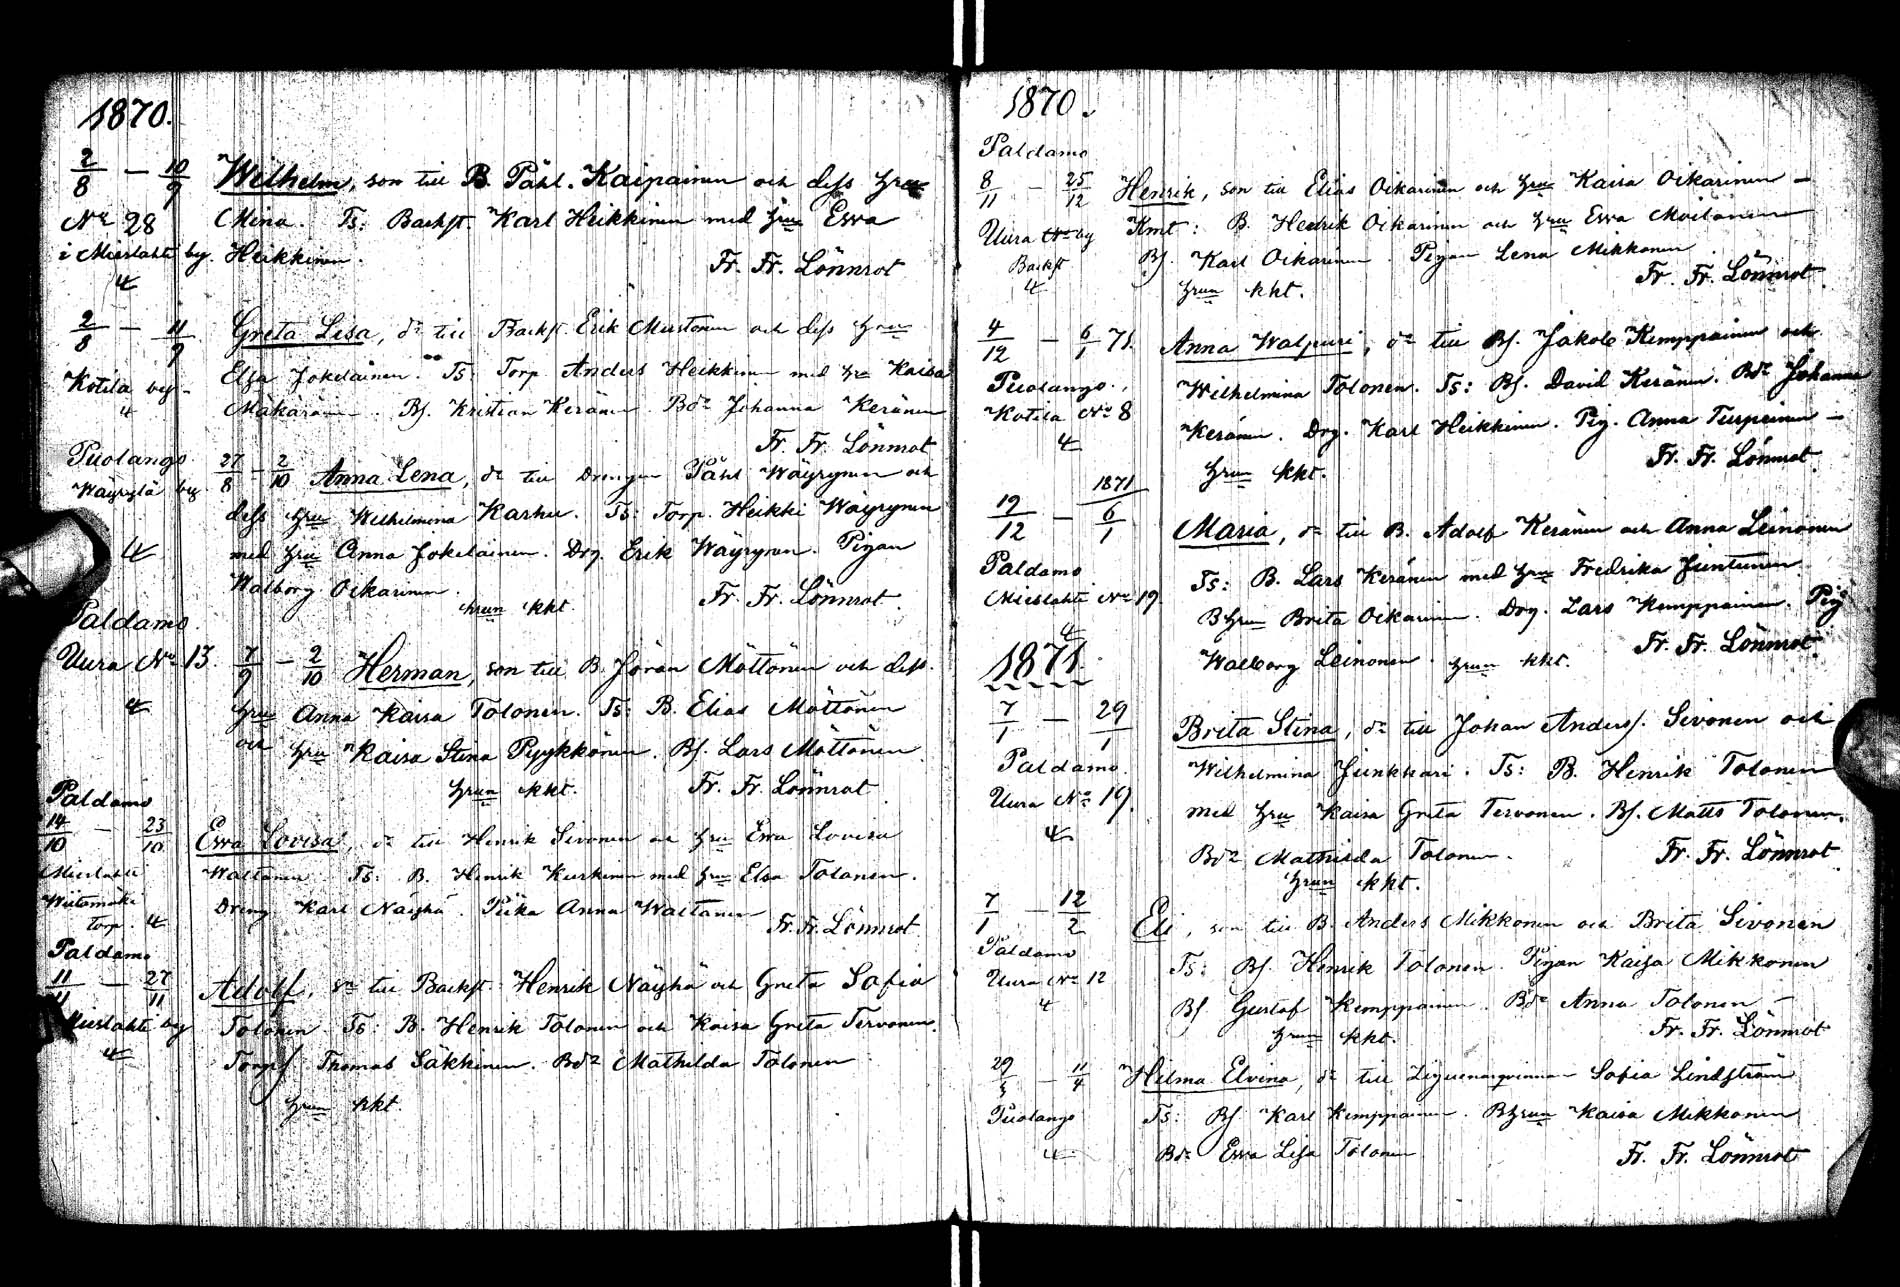 1870.
2/8 — 10/9 Wilhelm, son till B. Påhl. Kaipainen och dess hru
No 28 Mina. Ts: Backst. Karl Heikkinen med hru Ewa
i Mieslahti by. Heikkinen.
4 Fr. Fr. Lönnrot
2/8 — 11/9 Greta Lisa, dr till Backst. Erik Mustonen och dess hru
Kotila by. Elsa Jokelainen. Ts: Torp. Anders Heikkinen med hru Kaisa
4 Makarainen. Bs. Kristian Keränen. Bdr Johanna Keränen
Fr. Fr. Lönnrot
Puolango 27/8 — 2/10 Anna Lena, dr till Drengen Påhl Wäyrynen och
Wäyrylä by dess hru Wilhelmina Karhu. Ts: Torp. Heikki Wäyrynen
4 med hru Anna Jokelainen. Drg. Erik Wäyrynen. Pigan
Walborg Oikarinen.
hrun kkt. Fr. Fr. Lönnrot.
Paldamo.
Uura No 13. 7/9 — 2/10 Herman, son till B. Jöran Möttönen och dess
4 hru Anna Kaisa Tolonen. Ts: B. Elias Möttönen
och hru Kaisa Stina Pyykkönen. Bs. Lars Möttönen
hrun kkt. Fr. Fr. Lönnrot
Paldamo
14/10 — 23/10 Ewa Lovisa, dr till Henrik Sivonen och hru Ewa Lovisa
Mieslahti Waltanen. Ts: B. Henrik Kurkinen med hru Elsa Tolonen.
Wiitamäki Dreng Karl Näyhä. Piika Anna Waltanen
torp. 4 Fr. Fr. Lönnrot
Paldamo
11/11 — 27/11 Adolf, sn till Backst Henrik Näyhä och Greta Sofia
Mieslahti by Tolonen. Ts: B. Henrik Tolonen och Kaisa Greta Tervonen.
4 Torps Thomas Säkkinen. Bdr Mathilda Tolonen
hrun kkt.
1870.
Paldamo
8/11 — 25/12 Henrik, son till Elias Oikarinen och hru Kaisa Oikarinen —
Uura by Kmt: B. Hedrik Oikarinen och hru Ewa Moilanen
Backst Bs. Karl Oikarinen. Pigan Lena Mikkonen
4 hrun kkt. Fr. Fr. Lönnrot.
4/12 — 6/1 71. Anna Walpuri, dr till Bs. Jakob Kemppainen och
Puolango. Wilhelmina Tolonen. Ts: Bs. David Keränen. Bdr Johanna
Kotila No 8 Keränen. Drg. Karl Heikkinen. Pig. Anna Turpeinen —
4 hrun kkt. Fr. Fr. Lönnrot.
1871
19/12 — 6/1 Maria, dr till B. Adolf Keränen och Anna Leinonen
Paldamo Ts: B. Lars Keränen med hru Fredrika Juntunen
Mieslahti No 19 Bhrun Brita Oikarinen. Drg. Lars Kemppainen. Pig
4 Walborg Leinonen. hrun kkt. Fr. Fr. Lönnrot.
1871.
7/1 — 29/1 Brita Stina, dr till Johan Anderss. Sivonen och
Paldamo. Wilhelmina Junkkari. Ts: B. Henrik Tolonen
Uura No 19. med hru Kaisa Greta Tervonen. Bs. Matts Tolonen.
4 Bdr Mathilda Tolonen. Fr. Fr. Lönnrot
hrun kkt.
7/1 — 12/2 Eli, son till B. Anders Mikkonen och Brita Sivonen
Paldamo Ts: Bs. Henrik Tolonen. Pigan Kaisa Mikkonen
Uura No 12 Bs. Gustaf Kemppainen. Bdr Anna Tolonen —
4 hrun kkt. Fr. Fr. Lönnrot
29/3 — 11/4 Hilma Elvina, dr till Sofia Lindström
Puolango Ts: Bs Karl Kemppainen. Bhrun Kaisa Mikkonen
4 Bdr Ewa Lisa Tolonen Fr. Fr. Lönnrot